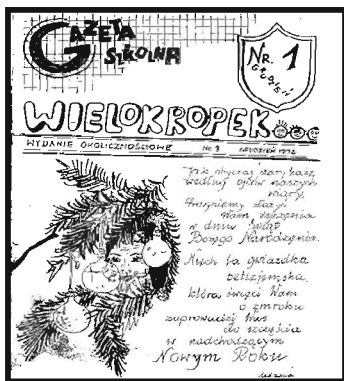 GAZETA
SZKOLNA
NR. 1
GRUDZIEŃ
WIELOKROPEK
WYDANIE OKOLICZNOŚCIOWE NR 1 GRUDZIEŃ 1992
Jak obyczaj stary każe,
według ojców naszych
wiary,
Pragniemy złożyć
Wam życzenia
w dniu Świąt
Bożego Narodzenia.
Niech ta gwiazdka
betlejemska,
która świeci Wam
o zmroku
zaprowadzi Was
do szczęścia
w nadchodzącym
Nowym Roku